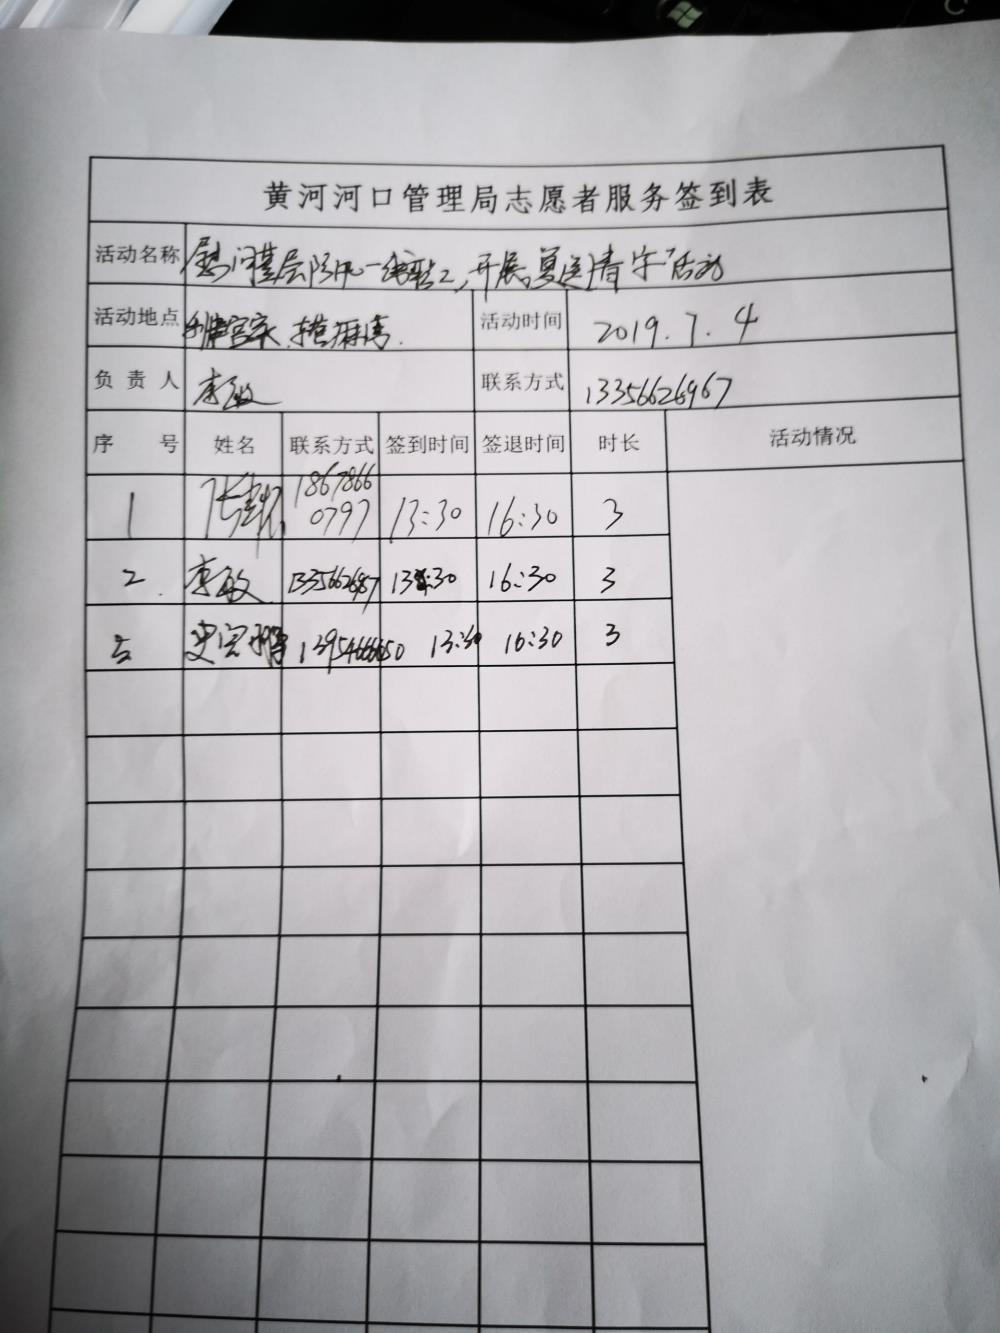 黄河河口管理局志愿者服务签到表
活动名称 慰问基层防汛一线职工,开展"夏送清凉"活动
活动地点 活动时间 2019.7.4
负责人 李敏 联系方式 13356626967
序号 姓名 联系方式 签到时间 签退时间 时长 活动情况
1 张 1867866
0797 13:30 16:30 3
2 李敏 13:30 16:30 3
3 史 13:30 16:30 3